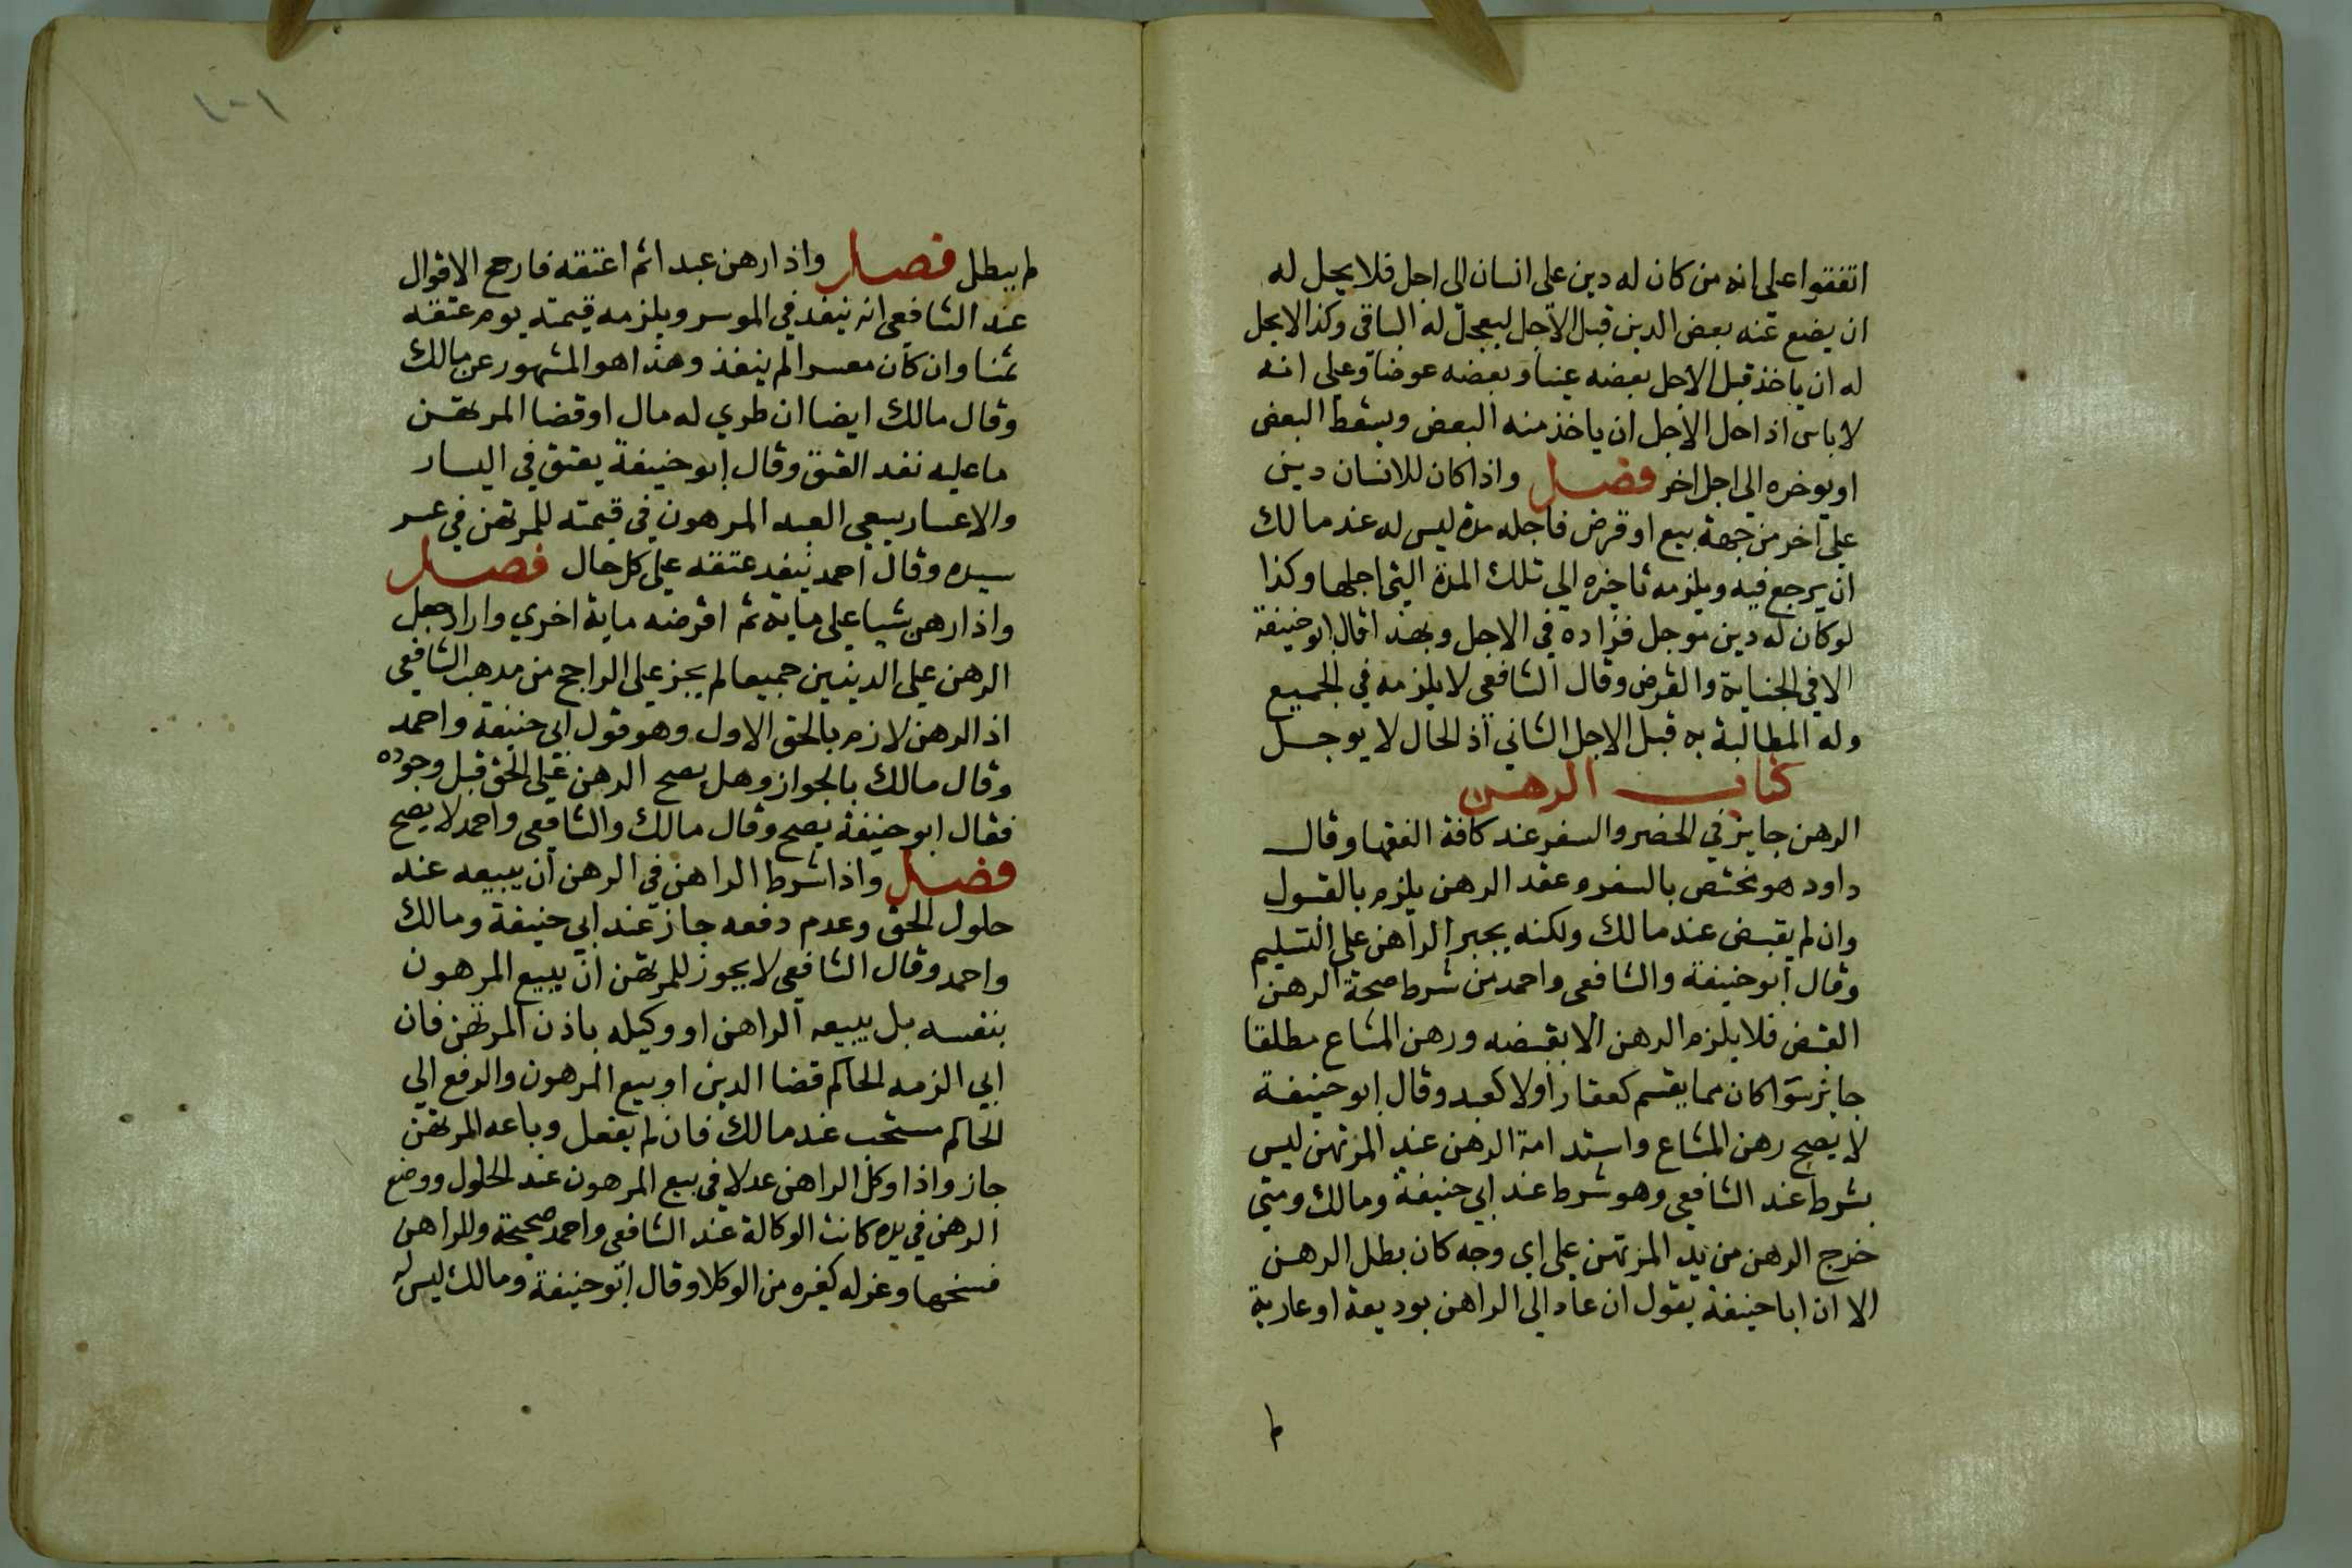 اتفقوا على انه من كان له دين على انسان الى اجل فلا يحل له
ان يضع عنه بعض الدين قبل الاجل ليعجل له الباقي وكذا لا يحل
له ان ياخذ قبل الاجل بعضه عينا وبعضه عوضا وعلى انه
لا باس اذا حل الاجل ان ياخذ منه البعض ويسقط البعض
او يوخره الي اجل اخر فصل واذا كان للانسان دين
علي اخر من جهة بيع او قرض فاجله مدة ليس له عند مالك
ان يرجع فيه ويلزمه تاخيره الي تلك المدة التي اجلها وكذا
لو كان له دين موجل فزاده في الاجل وبهذا قال ابو حنيفة
الا في الجناية والقرض وقال الشافعي لا يلزمه في الجميع
وله المطالبة به قبل الاجل الثاني اذ الحال لا يوجل
كتاب الرهن
الرهن جايز في الحضر والسفر عند كافة الفقها وقال
داود هو مختص بالسفر وعقد الرهن يلزم بالقبول
وان لم يقبض عند مالك ولكنه يجبر الراهن على التسليم
وقال ابو حنيفة والشافعي واحمد من شرط صحة الرهن
القبض فلا يلزم الرهن الا بقبضه ورهن المشاع مطلقا
جايز سوا كان مما يقسم كعقار اولا كعبد وقال ابو حنيفة
لا يصح رهن المشاع واستدامة الرهن عند المرتهن ليس
بشرط عند الشافعي وهو شرط عند ابي حنيفة ومالك ومتي
خرج الرهن من يد المرتهن علي اي وجه كان بطل الرهن
الا ان ابا حنيفة يقول ان عاد الي الراهن بوديعة او عارية
لم
١٠١
لم يبطل فصل واذا رهن عبدا ثم اعتقه فارجح الاقوال
عند الشافعي انه ينفذ في الموسر ويلزمه قيمته يوم عتقه
ثمنا وان كان معسرا لم ينفذ وهذا هو المشهور عن مالك
وقال مالك ايضا ان طري له مال او قضا المرتهن
ما عليه نفد العتق وقال ابو حنيفة يعتق في اليسار
والاعسار يسعي العبد المرهون في قيمته للمرتهن في عسر
سيده وقال احمد ينفد عتقه علي كل حال فصل
واذا رهن شيا علي ماية ثم اقرضه ماية اخري واراد جعل
الرهن علي الدينين جميعا لم يجز علي الراجح من مدهب الشافعي
اذ الرهن لازم بالحق الاول وهو قول ابي حنيفة واحمد
وقال مالك بالجواز وهل يصح الرهن علي الحق قبل وجوده
فقال ابو حنيفة يصح وقال مالك والشافعي واحمد لا يصح
فصل واذا شرط الراهن في الرهن ان يبيعه عند
حلول الحق وعدم دفعه جاز عند ابي حنيفة ومالك
واحمد وقال الشافعي لا يجوز للمرتهن ان يبيع المرهون
بنفسه بل يبيعه الراهن او وكيله باذن المرتهن فان
ابي الزمه الحاكم قضا الدين او بيع المرهون والرفع الي
الحاكم مستحب عند مالك فان لم يفعل وباعه المرتهن
جاز واذا وكل الراهن عدلا في بيع المرهون عند الحلول ووضع
الرهن في يده كانت الوكالة عند الشافعي واحمد صحيحة وللراهن
فسخها وعزله كغيره من الوكلا وقال ابو حنيفة ومالك ليس له